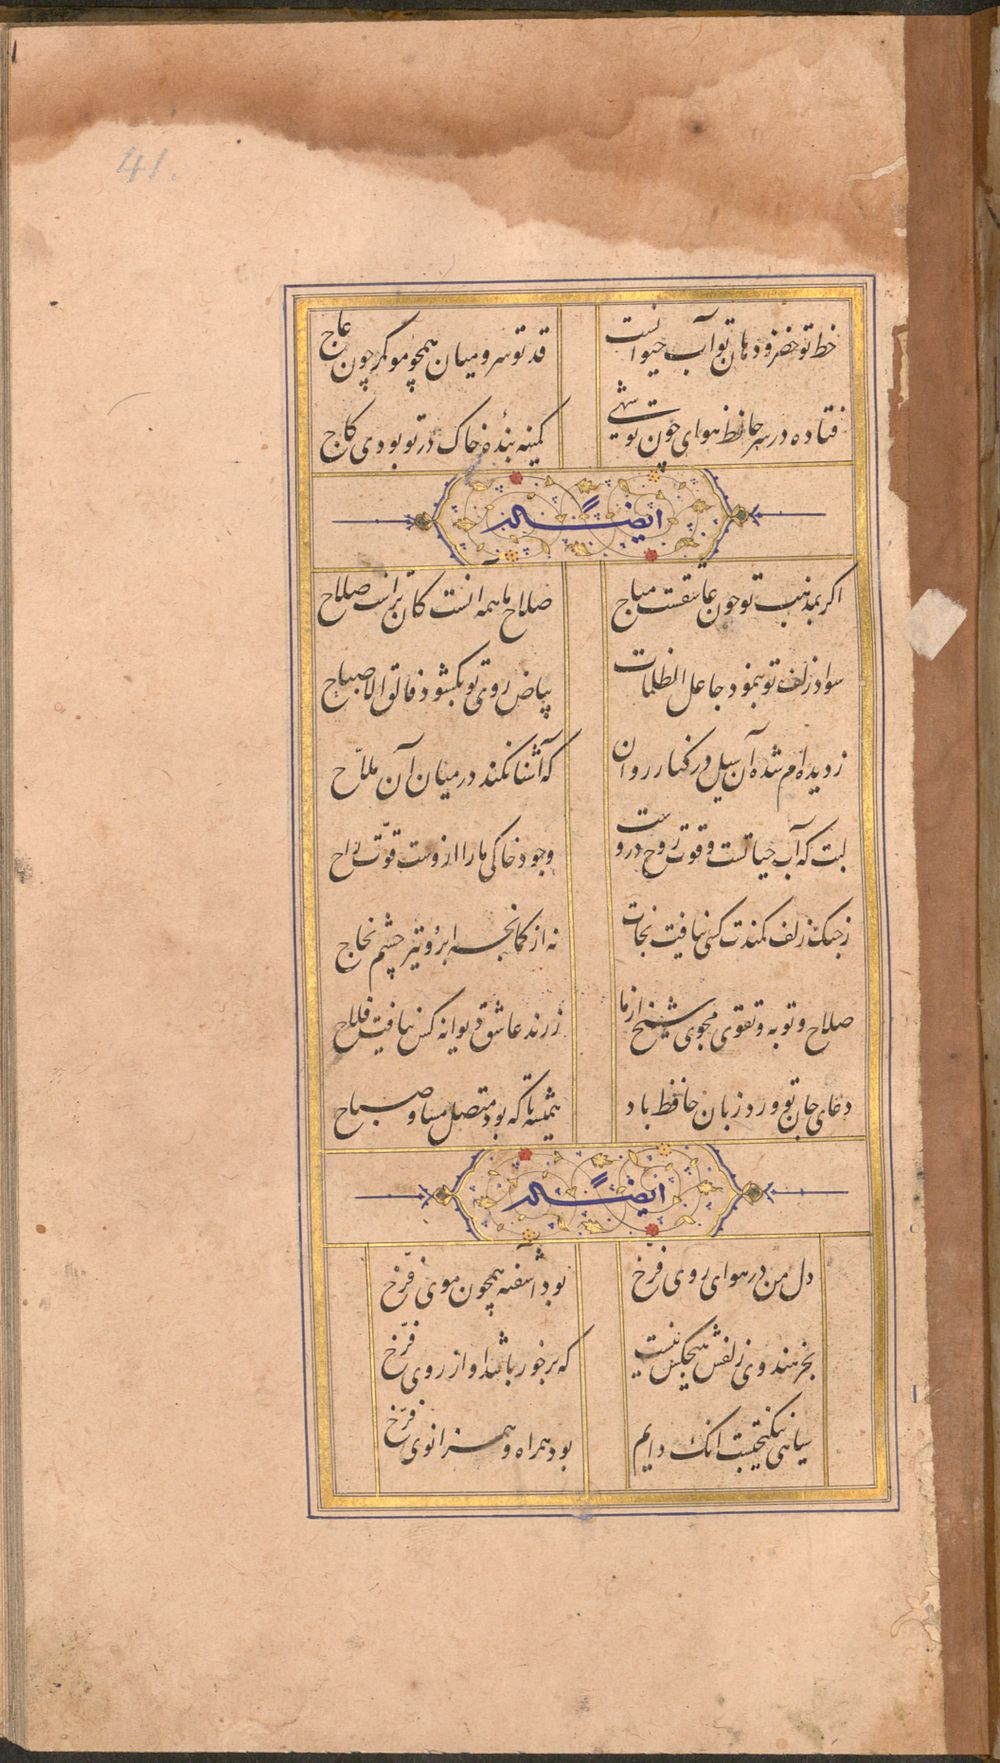 41.
خط تو خضر و دهان تو آب حیوانست
قد تو سرو و میان همچو مو گر چون عاج
فتاده در سر حافظ هوای چون تو شهی
کمینه بندهٔ خاک در تو بودی کاج
ایضاً له
اکر بمذهب تو خون عاشقست مباح
صلاح ما همه انست کان تراست صلاح
سواد زلف تو بنمود جاعل الظلمات
بیاض روی تو بکشود فالق الاصباح
ز دیده‌ام شده آن سیل در کنار روان
که آشنا نکند در میان آن ملّاح
لبت که آب حیاتست و قوت روح دروست
وجود خاکی ما را ازوست قوّت راح
ز چنک زلف کمندت کسی نیافت نجات
نه از کمانچه ابرو و تیر چشم نجاح
صلاح و توبه و تقوی مجوی شیخ از ما
ز رند عاشق دیوانه کس نیافت فلاح
دعای جان تو ورد زبان حافظ باد
همیشه تا که بود متصل مسا و صباح
ایضاً له
دل من در هوای روی فرّخ
بود آشفته همچون موی فرّخ
بجز هندوی زلفش هیچکس نیست
که برخور باشد او از روی فرّخ
سیاهی نیکبختست انک دایم
بود همراه و همزانوی فرّخ